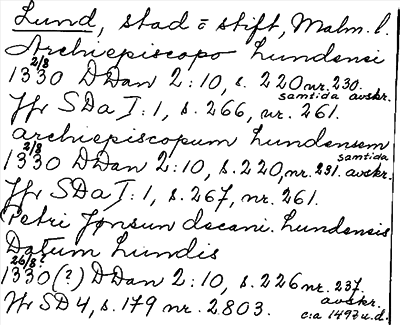 Lund, stad = stift, Malm. l.
Archiepiscopo Lundensi
1330 2/8 DDan 2:10, s. 220 nr. 230.
samtida avskr.
Jfr SDa I:1, s. 266, nr. 261.
archiepiscopum Lundensem
1330 2/8 DDan 2:10, s. 220, nr. 231. samtida avskr.
Jfr SDa I:1, s. 267, nr. 261.
Petri Jonsun decani Lundensis
Datum Lundis
1330(?) 26/8? DDan 2:10, s. 226 nr. 237.
avskr.
Jfr SD 4, s. 179 nr. 2803. c:a 1497 u.d.